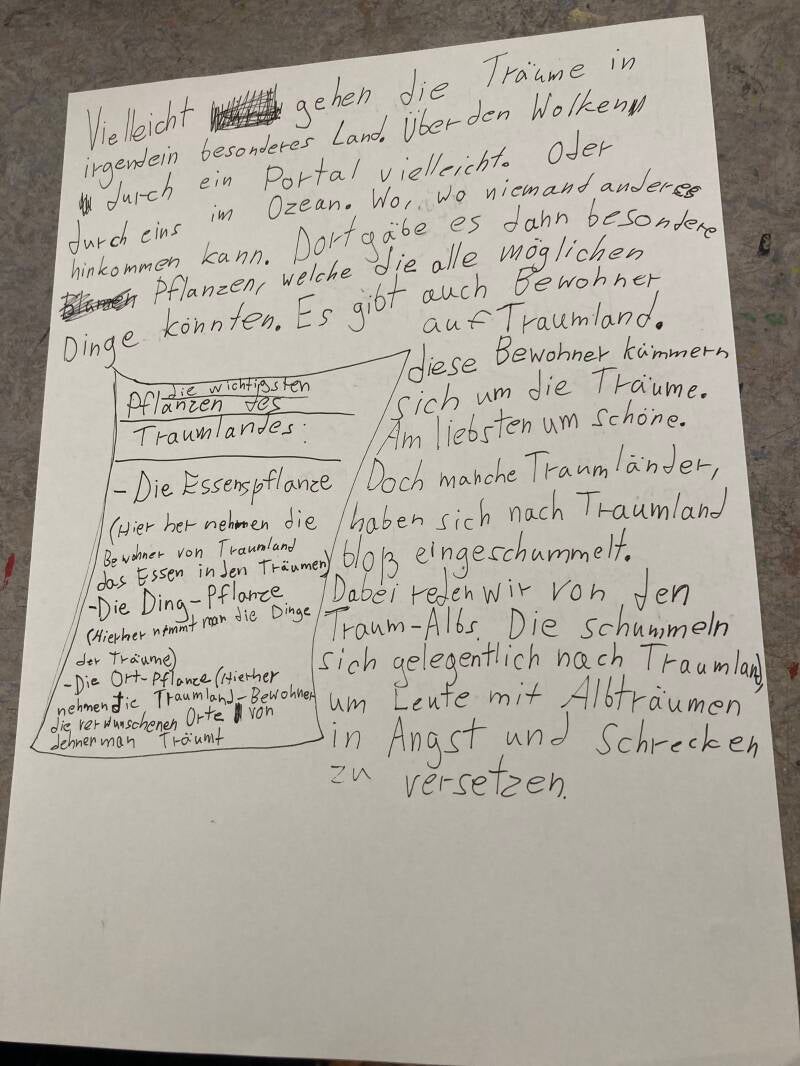 Vielleicht gehen die Träume in
irgendein besonderes Land. Über den Wolken
durch ein Portal vielleicht. Oder
durch eins im Ozean. Wo, wo niemand anderes
hinkommen kann. Dort gäbe es dann besondere
Blumen Pflanzen, welche die alle möglichen
Dinge könnten. Es gibt auch Bewohner
auf Traumland.
diese Bewohner kümmern
sich um die Träume.
Am liebsten um schöne.
Doch manche Traumländer,
haben sich nach Traumland
bloß eingeschummelt.
Dabei reden wir von den
Traum-Albs. Die schummeln
sich gelegentlich nach Traumland,
um Leute mit Albträumen
in Angst und Schrecken
zu versetzen.
die wichtigsten
Pflanzen des
Traumlandes:
- Die Essenspflanze
(Hier her nehmen die
Bewohner von Traumland
das Essen in den Träumen)
-Die Ding-Pflanze
(Hierher nimmt man die Dinge
der Träume)
-Die Ort-Pflanze (Hierher
nehmen die Traumland-Bewohner
die verwunschenen Orte von
dehnen man Träumt